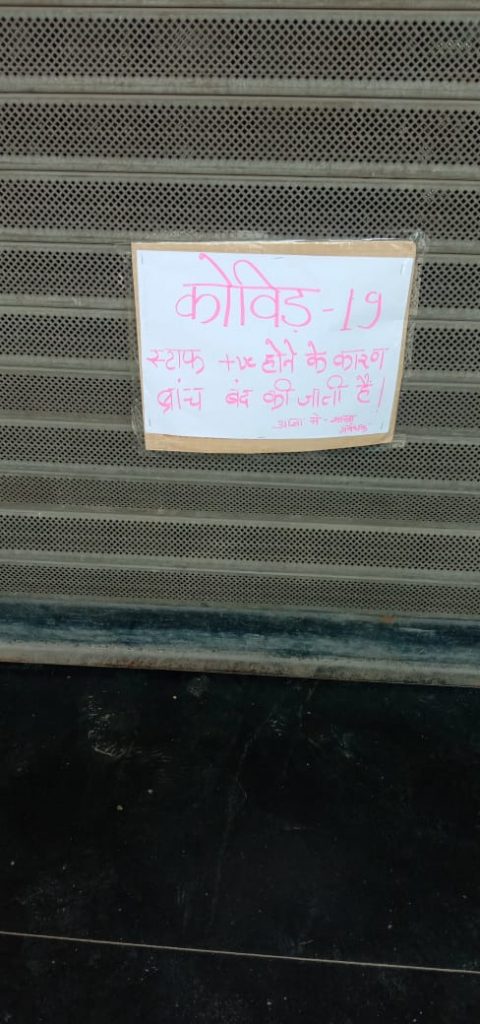 कोविड़-19
स्टाफ +ve होने के कारण
ब्रांच बंद की जाती है।
आज्ञा से - शाखा
प्रबंधक